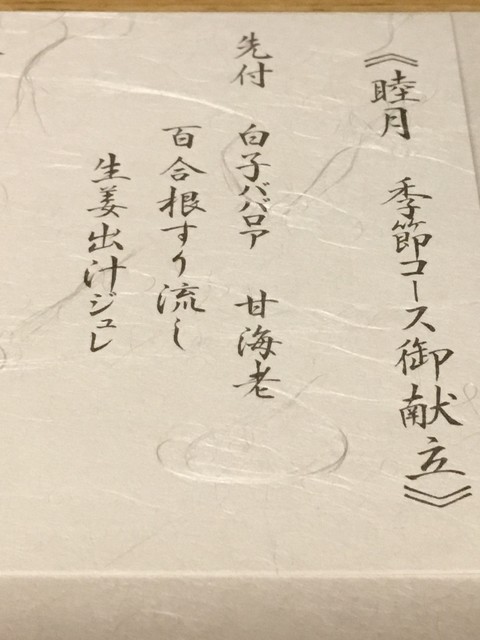 《睦月 季節コース御献立》
先付 白子ババロア 甘海老
百合根すり流し
生姜出汁ジュレ